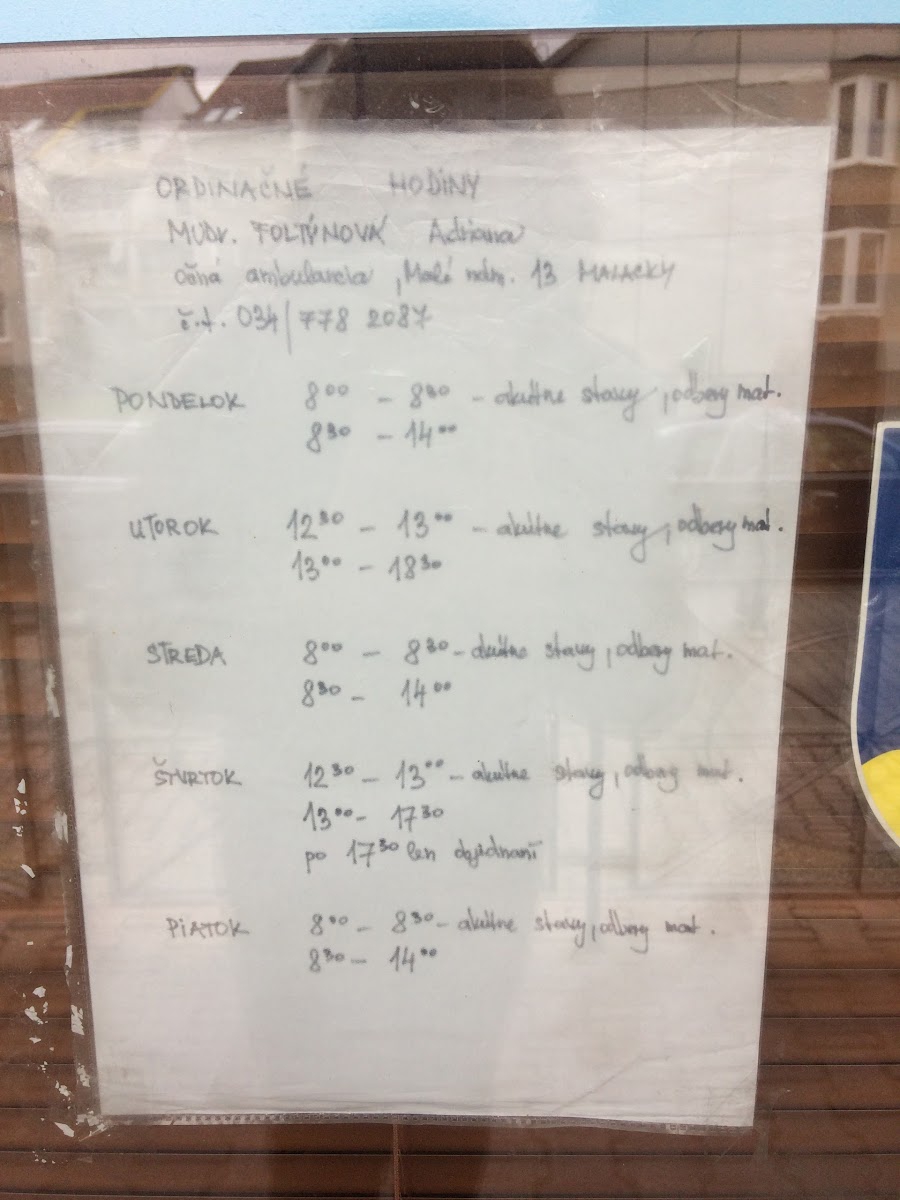 ORDINAČNÉ HODINY
MUDr. FOLTÝNOVÁ Adriana
očná ambulancia, Malé nám. 13 MALACKY
č.t. 034/778 2087
PONDELOK 8⁰⁰ - 8³⁰ - akútne stavy, odbery mat.
8³⁰ - 14⁰⁰
UTOROK 12³⁰ - 13⁰⁰ - akútne stavy, odbery mat.
13⁰⁰ - 18³⁰
STREDA 8⁰⁰ - 8³⁰ - akútne stavy, odbery mat.
8³⁰ - 14⁰⁰
ŠTVRTOK 12³⁰ - 13⁰⁰ - akútne stavy, odbery mat.
13⁰⁰ - 17³⁰
po 17³⁰ len objednaní
PIATOK 8⁰⁰ - 8³⁰ - akútne stavy, odbery mat.
8³⁰ - 14⁰⁰